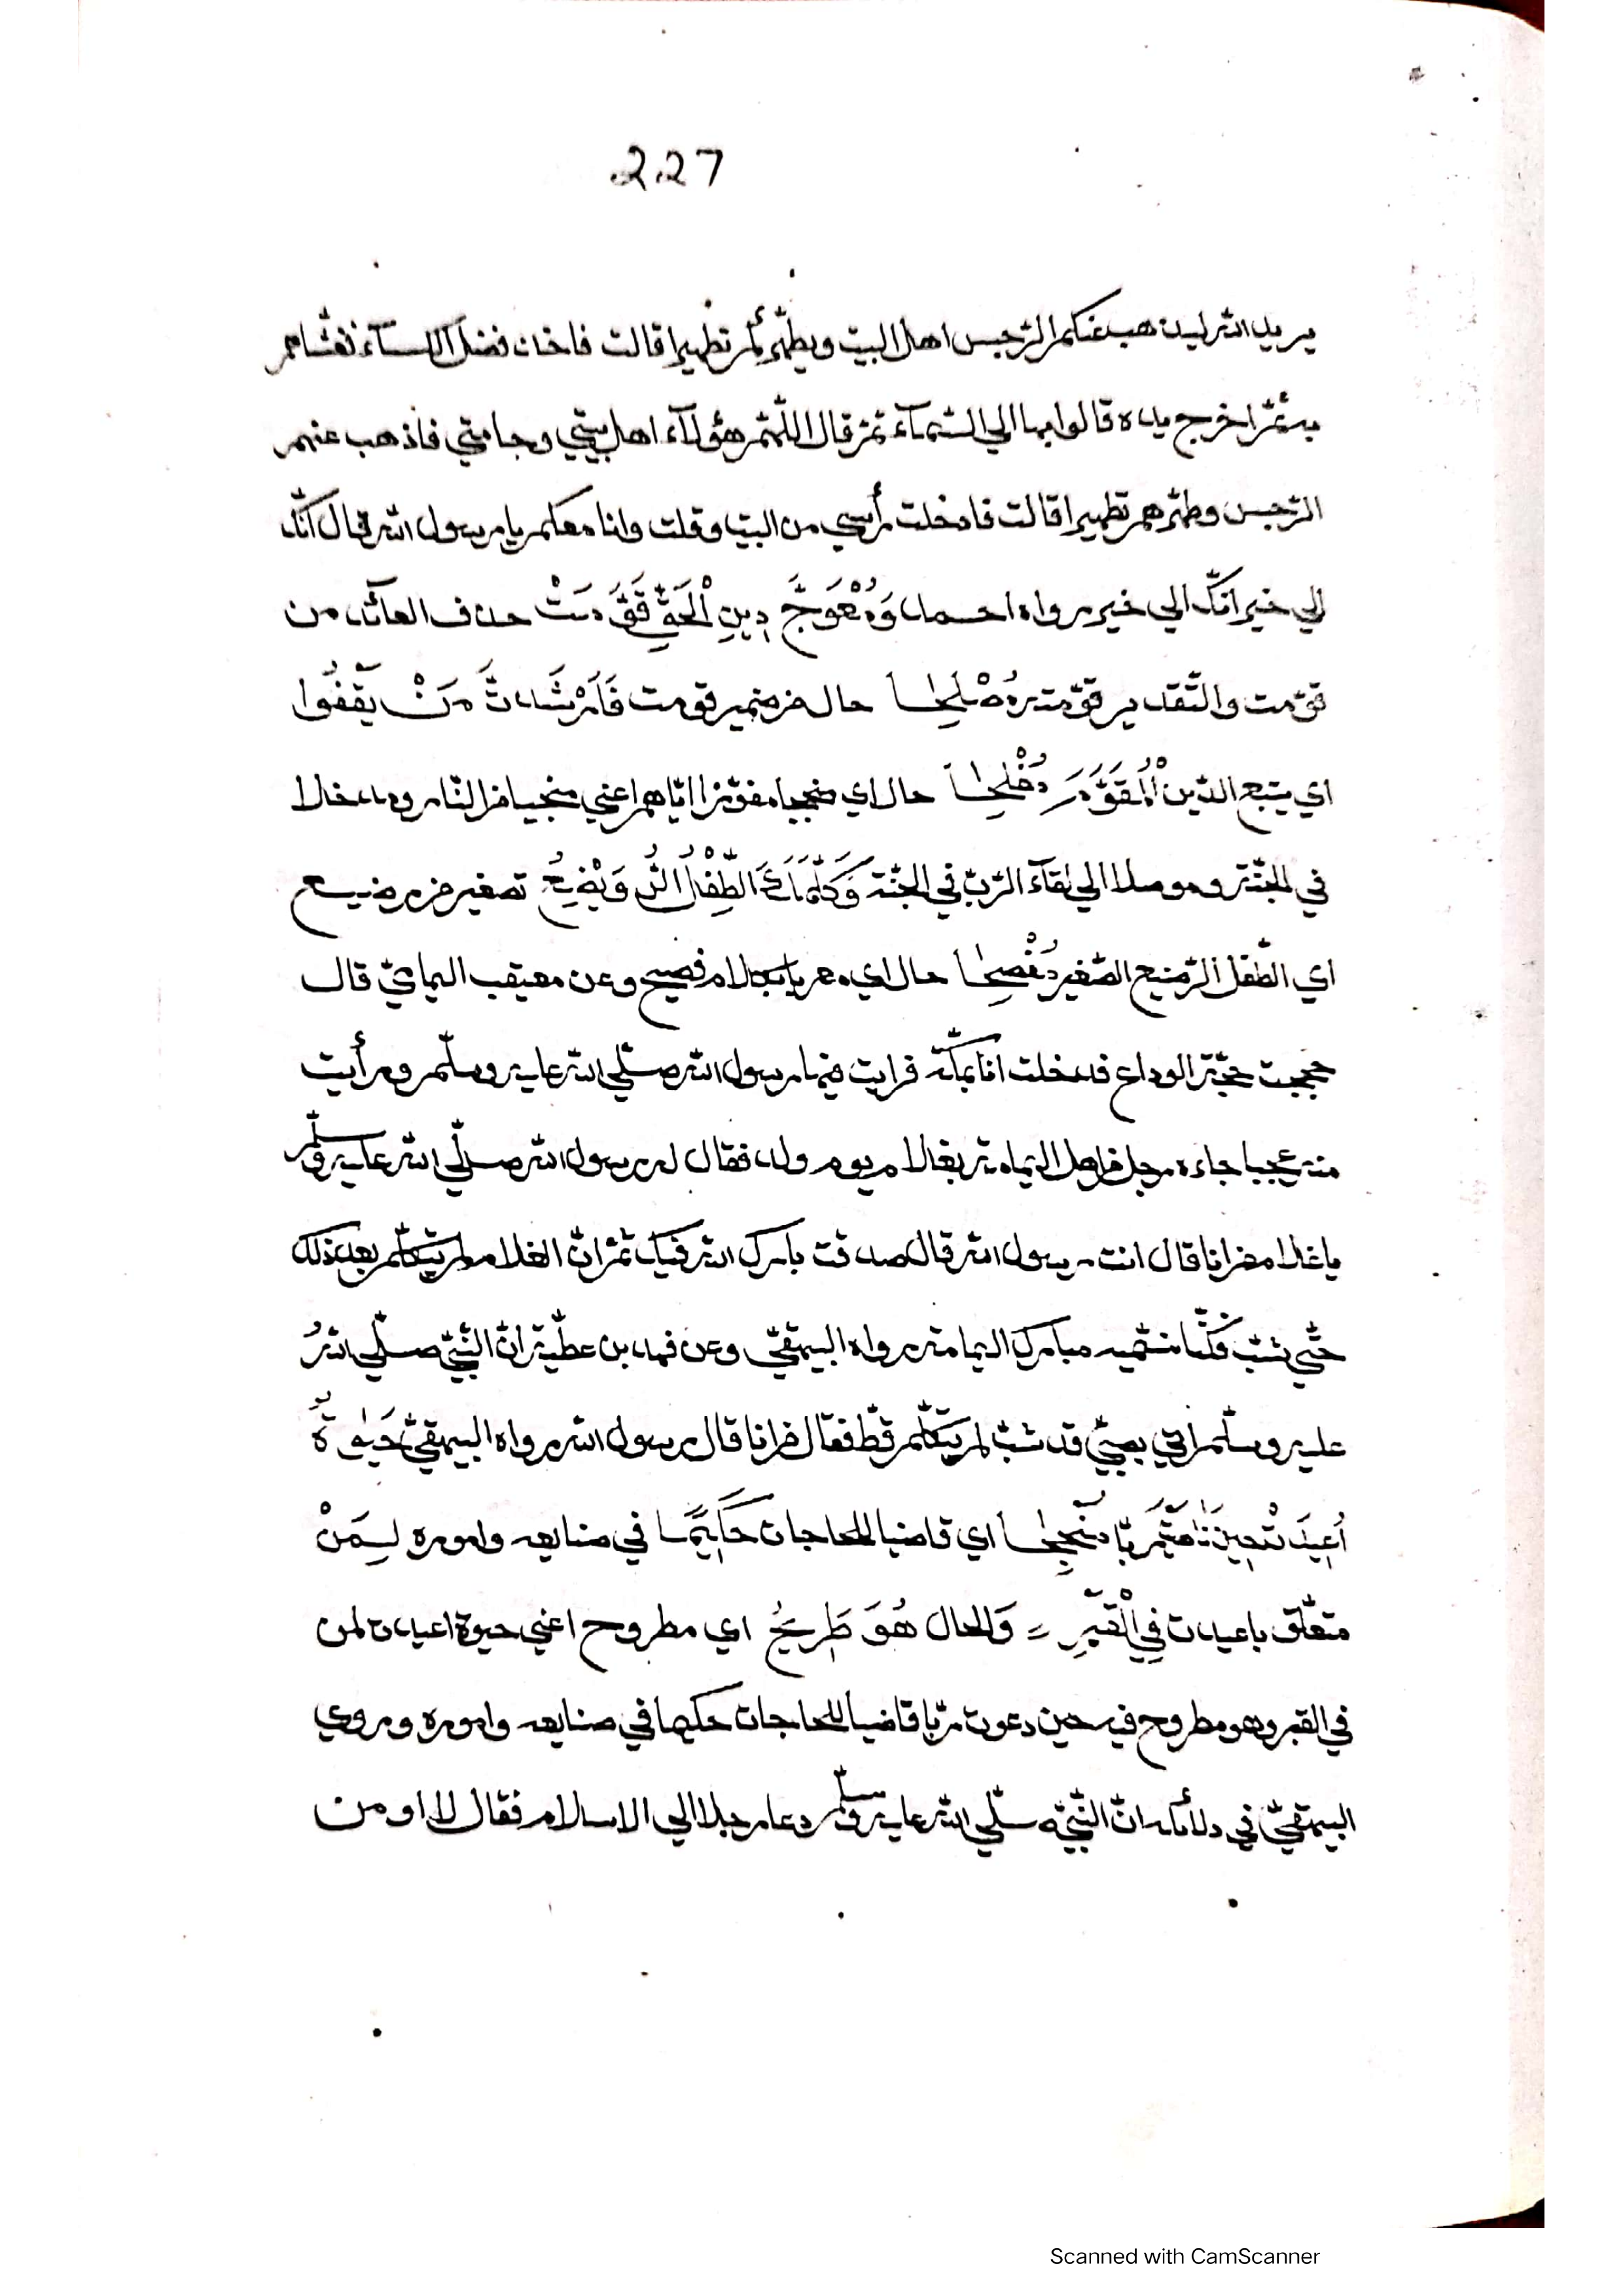 227
يريد الله ليذهب عنكم الرّجس اهل البيت ويطهّركم تطهيرا قالت فاخذ فضل الكسآء فغشّاهم
به ثمّ اخرج يده قالوا بها الي السّمآء ثمّ قال اللّهمّ هؤلآء اهل بيتي وحامتي فاذهب عنهم
الرّجس وطهّرهم تطهيرا قالت فادخلت رأسي من البيت وقلت وانا معكم يا رسول الله قال انّك
الي خير انّك الي خير رواه احمد وَمُعْوَجَّ دِينِ الْحَقِّ قَوَّمَتْ حذف العائد من
قوّمت والتّقدير قوّمته مُصْلِحاً حال من ضمير قومت فَأَرْشَدتَّ مَنْ يَقْفُوا
اي يتبع الدّين الْمُقَوَّمَ مُفْلِحاً حال اي منجيا مفوّزا ايّاهم اعني منجيا من النّار ومدخلا
في الجنّة وموصلا الي لقآء الرّبّ في الجنّة وَكَلَّمَكَ الطِّفْلُ الرُّضَيْعُ تصغير من رضيع
اي الطّفل الرّضيع الصّغير مُفْصِحاً حال اي معربا بكلام فصيح وعن معيقب اليماميّ قال
حججت حجّة الوداع فدخلت انا بمكّة فرايت فيها رسول الله صلّي الله عليه وسلّم ورأيت
منه عجبا جاءه رجل من اهل اليمامة بغلام يوم ولد فقال له رسول الله صلّي الله عليه وسلّم
يا غلام من انا قال انت رسول الله قال صدقت بارك الله فيك ثمّ انّ الغلام لم يتكلّم بعد ذلك
حتّي شبّ فكنّا نسمّيه مبارك اليمامة رواه البيهقيّ وعن فهد بن عطيّة انّ النّبيّ صلّي اللهُ
عليه وسلّم اتي بصبيّ قد شبّ لم يتكلّم قطّ فقال من انا قال رسول الله رواه البيهقيّ حَيٰوةٌ
أُعِيدَتْ حِينَ نَادَيْتَ رَبّاً مُنْجِحاً اي قاضيا للحاجات حَكِيمًا في صنايعه واموره لِمَنْ
متعلّق باعيدت فِي الْقَبْرِ وَالحال هُوَ طَرِيحُ اي مطروح اعني حيوة اعيدت لمن
في القبر وهو مطروح فيه حين دعوت ربّا قاضيا للحاجات حكيما في صنايعه واموره وروي
البيهقيّ في دلائله انّ النّبيّ صلّي الله عليه وسلّم دعا رجلا الي الاسلام فقال لا اومن
Scanned with CamScanner